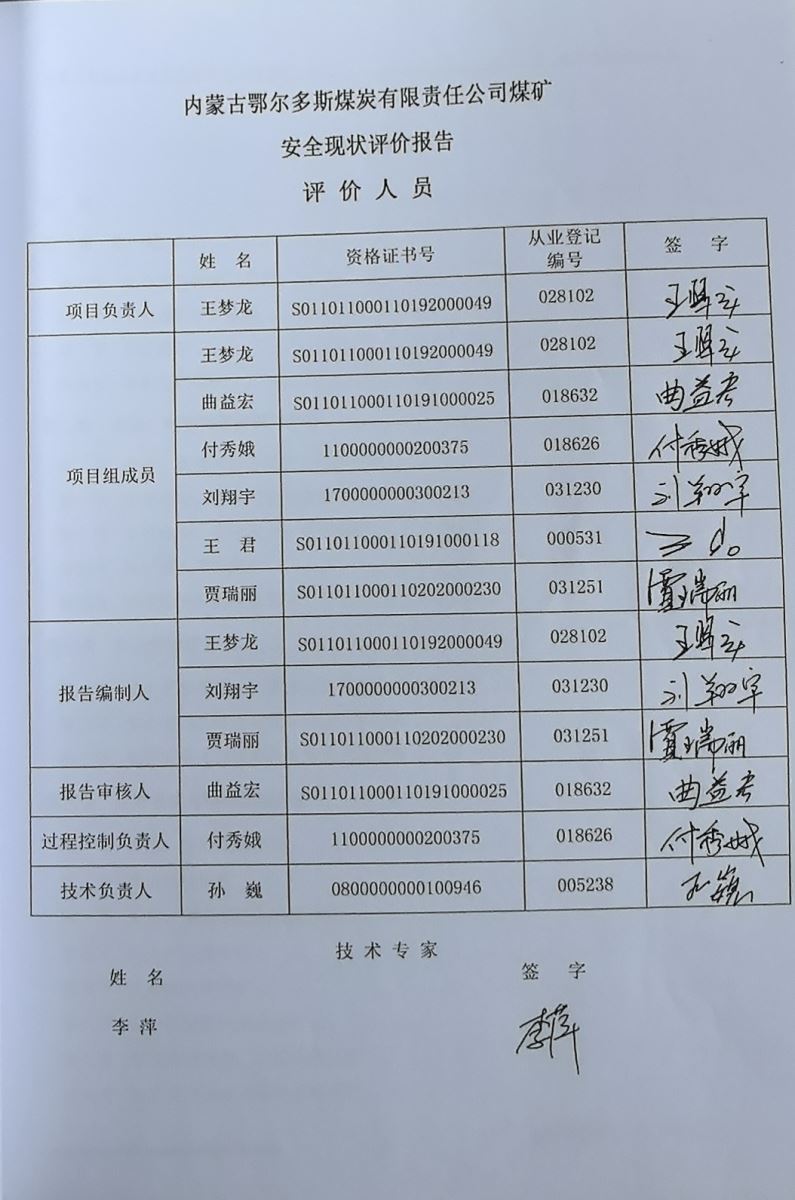 内蒙古鄂尔多斯煤炭有限责任公司煤矿
安全现状评价报告
评价人员
姓 名 资格证书号 从业登记编号 签 字
项目负责人 王梦龙 S011011000110192000049 028102
项目组成员 王梦龙 S011011000110192000049 028102
曲益宏 S011011000110191000025 018632 曲益宏
付秀娥 1100000000200375 018626 付秀娥
刘翔宇 1700000000300213 031230 刘翔宇
王 君 S011011000110191000118 000531
贾瑞丽 S011011000110202000230 031251 贾瑞丽
报告编制人 王梦龙 S011011000110192000049 028102
刘翔宇 1700000000300213 031230 刘翔宇
贾瑞丽 S011011000110202000230 031251 贾瑞丽
报告审核人 曲益宏 S011011000110191000025 018632 曲益宏
过程控制负责人 付秀娥 1100000000200375 018626 付秀娥
技术负责人 孙 巍 0800000000100946 005238 孙巍
技术专家
姓 名 签 字
李 萍 李萍